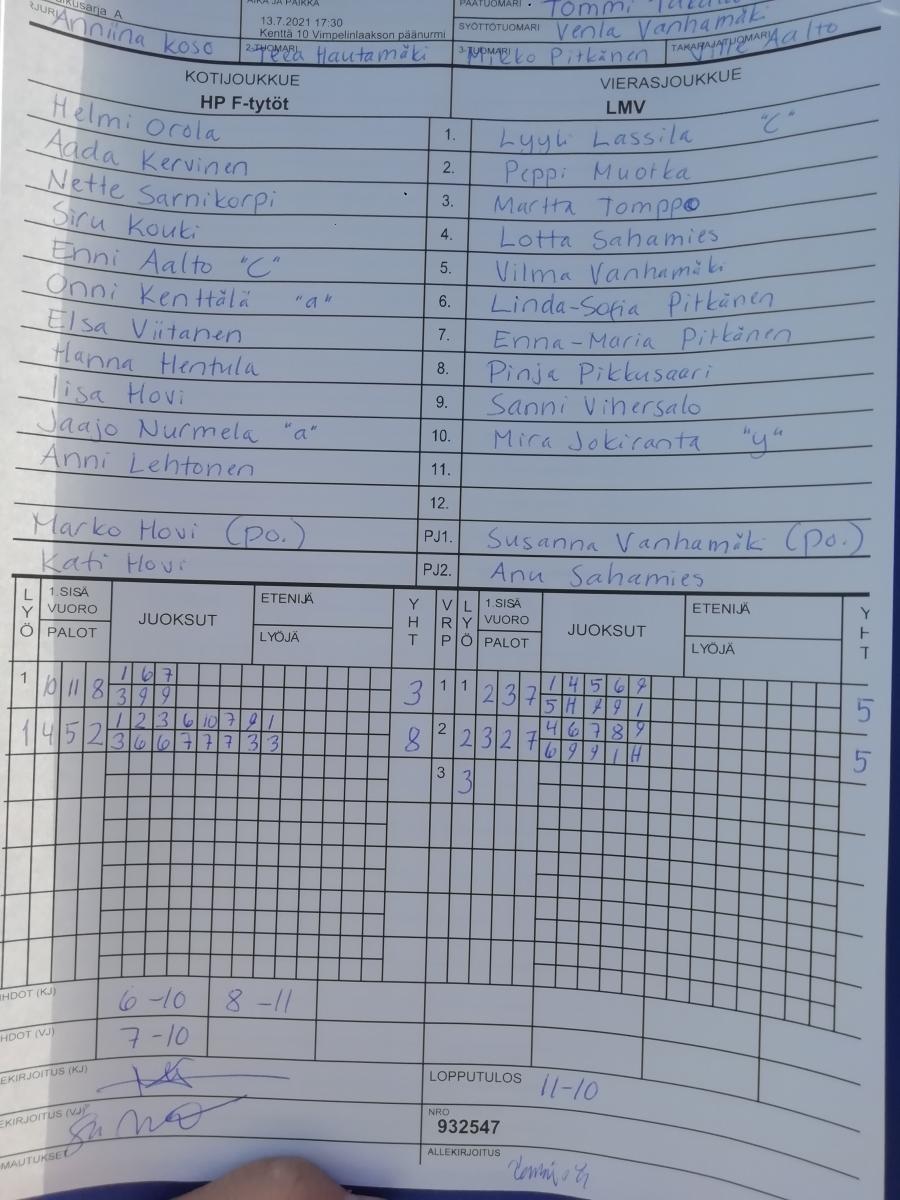 Sarja A
AIKA JA PAIKKA
13.7.2021 17:30
Kenttä 10 Vimpelinlaakson päänurmi
PÄÄTUOMARI Tommi
SYÖTTÖTUOMARI Venla Vanhamäki
Anniina Koso
2-TUOMARI Teea Hautamäki
3-TUOMARI Mikko Pitkänen
TAKARAJATUOMARI Ville Aalto
KOTIJOUKKUE VIERASJOUKKUE
HP F-tytöt LMV
Helmi Orola 1. Lyyli Lassila "C"
Aada Kervinen 2. Peppi Muotka
Nette Sarnikorpi 3. Martta Tomppo
Siru Kouki 4. Lotta Sahamies
Enni Aalto "C" 5. Vilma Vanhamäki
Onni Kenttälä "a" 6. Linda-Sofia Pitkänen
Elsa Viitanen 7. Enna-Maria Pitkänen
Hanna Hentula 8. Pinja Pikkusaari
Iisa Hovi 9. Sanni Vihersalo
Jaajo Nurmela "a" 10. Mira Jokiranta "y"
Anni Lehtonen 11.
12.
Marko Hovi (po.) PJ1. Susanna Vanhamäki (po.)
Kati Hovi PJ2. Anu Sahamies
LYÖ 1.SISÄ VUORO PALOT JUOKSUT ETENIJÄ LYÖJÄ YHT VRP LYÖ 1.SISÄ VUORO PALOT JUOKSUT ETENIJÄ LYÖJÄ YHT
1 10 11 8 1 6 7 3 1 1 2 3 7 1 4 5 6 9 5
3 9 9 5 H 9 9 1
1 4 5 2 1 2 3 6 10 7 9 1 8 2 2 3 2 7 4 6 7 8 9 5
3 6 6 7 7 7 3 3 6 9 9 1 H
3 3
HDOT (KJ) 6-10 8-11
HDOT (VJ) 7-10
EKIRJOITUS (KJ)
LOPPUTULOS 11-10
EKIRJOITUS (VJ)
NRO
932547
OMAUTUKSET
ALLEKIRJOITUS